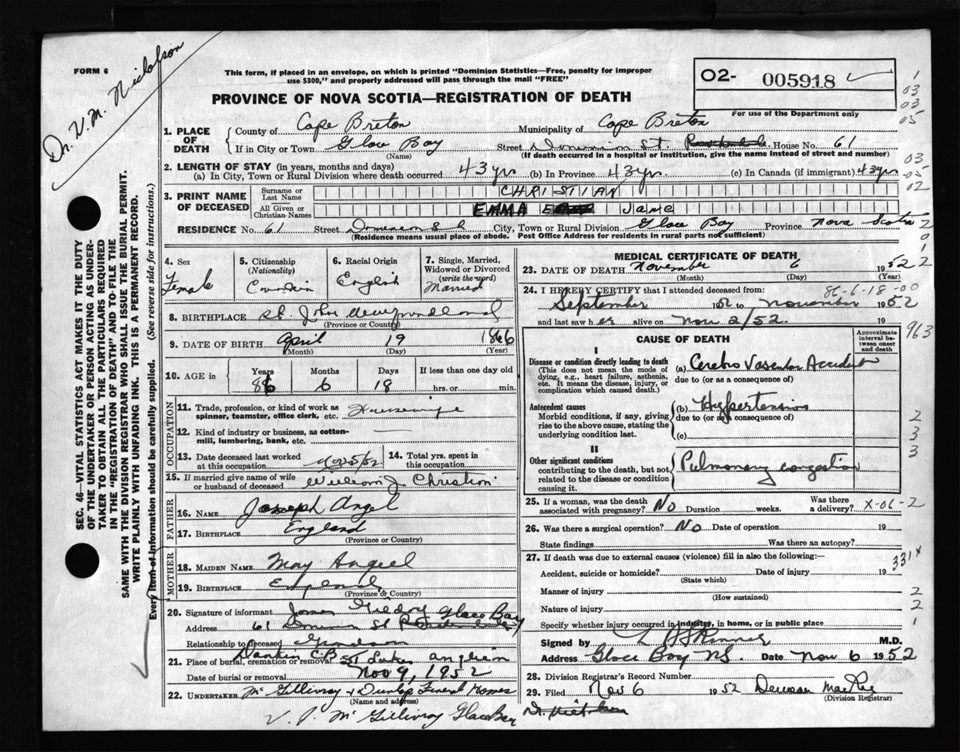 FORM 6
Dr. V. M. Nicholson
This form, if placed in an envelope, on which is printed "Dominion Statistics—Free, penalty for improper
use $300," and properly addressed will pass through the mail "FREE"
02- 005918
PROVINCE OF NOVA SCOTIA—REGISTRATION OF DEATH
For use of the Department only
1. PLACE OF DEATH
County of Cape Breton Municipality of Cape Breton
If in City or Town Glace Bay Street Dominion St. House No. 61
(Name) (If death occurred in a hospital or institution, give the name instead of street and number)
2. LENGTH OF STAY (in years, months and days)
(a) In City, Town or Rural Division where death occurred 43 yrs (b) In Province 43 yrs. (c) In Canada (if immigrant) 43 yrs
3. PRINT NAME OF DECEASED
Surname or Last Name CHRISTIAN
All Given or Christian Names EMMA Jane
RESIDENCE No. 61 Street Dominion St City, Town or Rural Division Glace Bay Province Nova Scotia
(Residence means usual place of abode. Post Office Address for residents in rural parts not sufficient)
4. Sex Female
5. Citizenship (Nationality) Canadian
6. Racial Origin English
7. Single, Married, Widowed or Divorced (write the word) Married
8. BIRTHPLACE St John Newfoundland
(Province or Country)
9. DATE OF BIRTH April 19 1866
(Month) (Day) (Year)
10. AGE in Years 86 Months 6 Days 18 If less than one day old
hrs. or min.
OCCUPATION
11. Trade, profession, or kind of work as
spinner, teamster, office clerk, etc. Housewife
12. Kind of industry or business, as cotton-
mill, lumbering, bank, etc. —
13. Date deceased last worked
at this occupation Nov 5/52
14. Total yrs. spent in
this occupation
15. If married give name of wife
or husband of deceased William J. Christian
FATHER
16. Name Joseph Angel
17. Birthplace England
(Province or Country)
MOTHER
18. Maiden Name May Angell
19. Birthplace England
(Province or Country)
20. Signature of informant Gregory Glace Bay
Address 61 Dominion St
Relationship to deceased Grandson
21. Place of burial, cremation or removal St Lukes
Date of burial or removal Nov 9, 1952
22. UNDERTAKER McGillivray & Dunlop Funeral Homes
(Name and address)
V. P. McGillivray Glace Bay
MEDICAL CERTIFICATE OF DEATH
23. DATE OF DEATH November 6 1952
(Month) (Day) (Year)
24. I HEREBY CERTIFY that I attended deceased from: 86-6-18-00
September 1952 to November 1952
and last saw her alive on Nov 2/52.
CAUSE OF DEATH
Approximate interval between onset and death
I
Disease or condition directly leading to death
(This does not mean the mode of
dying, e.g., heart failure, asthenia,
etc. It means the disease, injury, or
complication which caused death.)
(a) Cerebro Vascular Accident
due to (or as a consequence of)
Antecedent causes
Morbid conditions, if any, giving
rise to the above cause, stating the
underlying condition last.
(b) Hypertension
due to (or as a consequence of)
(c)
II
Other significant conditions
contributing to the death, but not
related to the disease or condition
causing it.
Pulmonary congestion
25. If a woman, was the death
associated with pregnancy? No Duration weeks. Was there
a delivery? X-06-2
26. Was there a surgical operation? No Date of operation 19
State findings Was there an autopsy?
27. If death was due to external causes (violence) fill in also the following:—
Accident, suicide or homicide? Date of injury 19
(State which)
331x
Manner of injury
(How sustained)
Nature of injury
Specify whether injury occurred in industry, in home, or in public place
Signed by M.D.
Address Glace Bay NS. Date Nov 6 1952
28. Division Registrar's Record Number
29. Filed Nov 6 1952
(Division Registrar)
SEC. 46—VITAL STATISTICS ACT MAKES IT THE DUTY
OF THE UNDERTAKER OR PERSON ACTING AS UNDER-
TAKER TO OBTAIN ALL THE PARTICULARS REQUIRED
IN THE "REGISTRATION OF DEATH" AND TO FILE THE
SAME WITH THE DIVISION REGISTRAR WHO SHALL ISSUE THE BURIAL PERMIT.
WRITE PLAINLY WITH UNFADING INK. THIS IS A PERMANENT RECORD.
Every item of information should be carefully supplied. (See reverse side for instructions.)
1
03
03
05
03
05
02
2
0
1
2
963
2
3
3
2
2
1